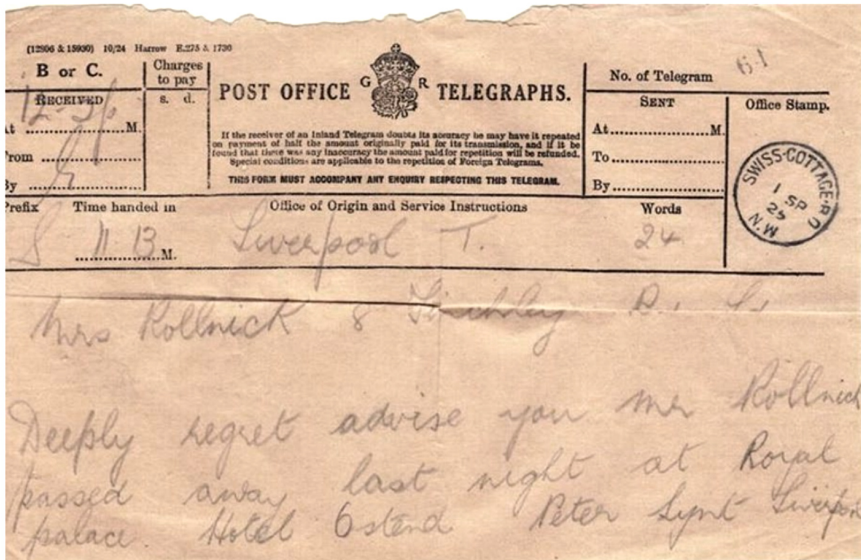 (12806 & 15930) 10/24 Harrow E.275 & 1730
B or C.
Charges
to pay
s. d.
RECEIVED
At M.
From
By
POST OFFICE G R TELEGRAPHS.
If the receiver of an Inland Telegram doubts its accuracy he may have it repeated
on payment of half the amount originally paid for its transmission, and if it be
found that there was any inaccuracy the amount paid for repetition will be refunded.
Special conditions are applicable to the repetition of Foreign Telegrams.
THIS FORM MUST ACCOMPANY ANY ENQUIRY RESPECTING THIS TELEGRAM.
No. of Telegram 61
SENT
At M.
To
By
Office Stamp.
SWISS-COTTAGE
1 SP
25
N.W
Prefix Time handed in Office of Origin and Service Instructions Words
S 11 13 M. Liverpool T. 24
Mrs Rollnick 8 Finchley
Deeply regret advise you Mr Rollnick
passed away last night at Royal
palace Hotel Ostend Peter Liverpool